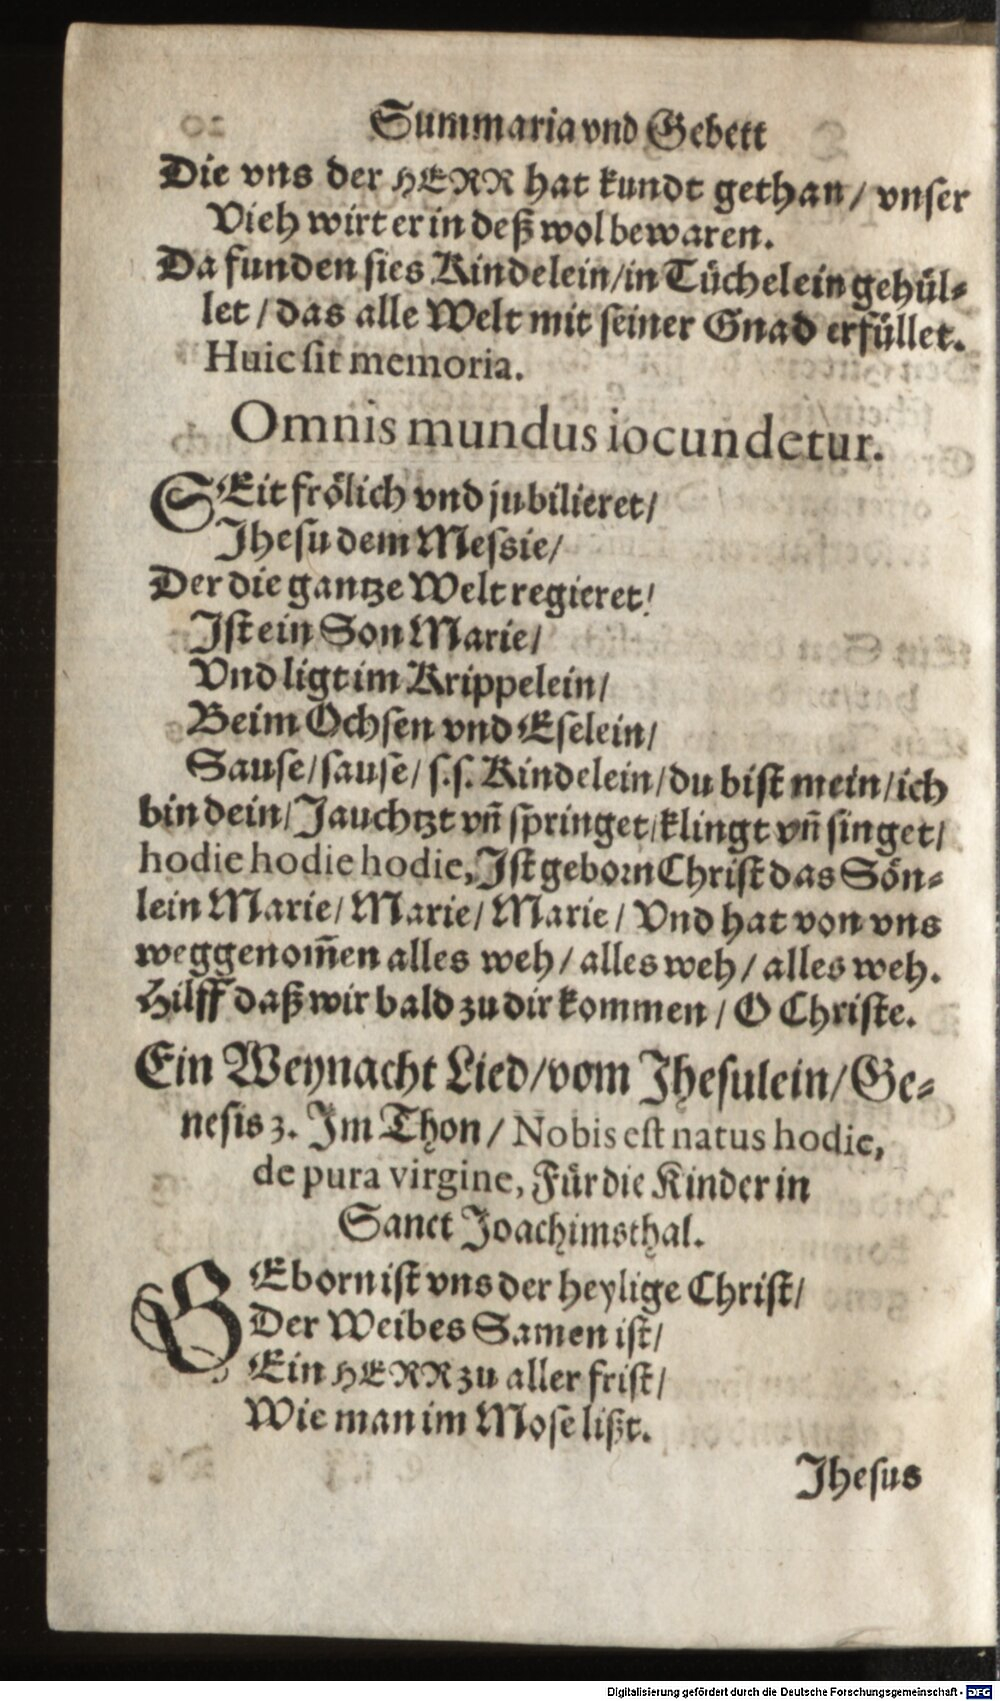 Summaria vnd Gebett
Die vns der HERR hat kundt gethan / vnser
Vieh wirt er in deß wol bewaren.
Da funden sies Kindelein / in Tüchelein gehül-
let / das alle Welt mit seiner Gnad erfüllet.
Huic sit memoria.
Omnis mundus iocundetur.
SEit frölich vnd jubilieret /
Jhesu dem Messie /
Der die gantze Welt regieret /
Ist ein Son Marie /
Vnd ligt im Krippelein /
Beim Ochsen vnd Eselein /
Sause / sause / s.s. Kindelein / du bist mein / ich
bin dein / Jauchtzt vñ springet / klingt vñ singet /
hodie hodie hodie, Ist geborn Christ das Sön-
lein Marie / Marie / Marie / Vnd hat von vns
weggenom̃en alles weh / alles weh / alles weh.
Hilff daß wir bald zu dir kommen / O Christe.
Ein Weynacht Lied / vom Jhesulein / Ge-
nesis 3. Im Thon / Nobis est natus hodie,
de pura virgine, Für die Kinder in
Sanct Joachimsthal.
GEborn ist vns der heylige Christ /
Der Weibes Samen ist /
Ein HERR zu aller frist /
Wie man im Mose lißt.
Jhesus
Digitalisierung gefördert durch die Deutsche Forschungsgemeinschaft - DFG